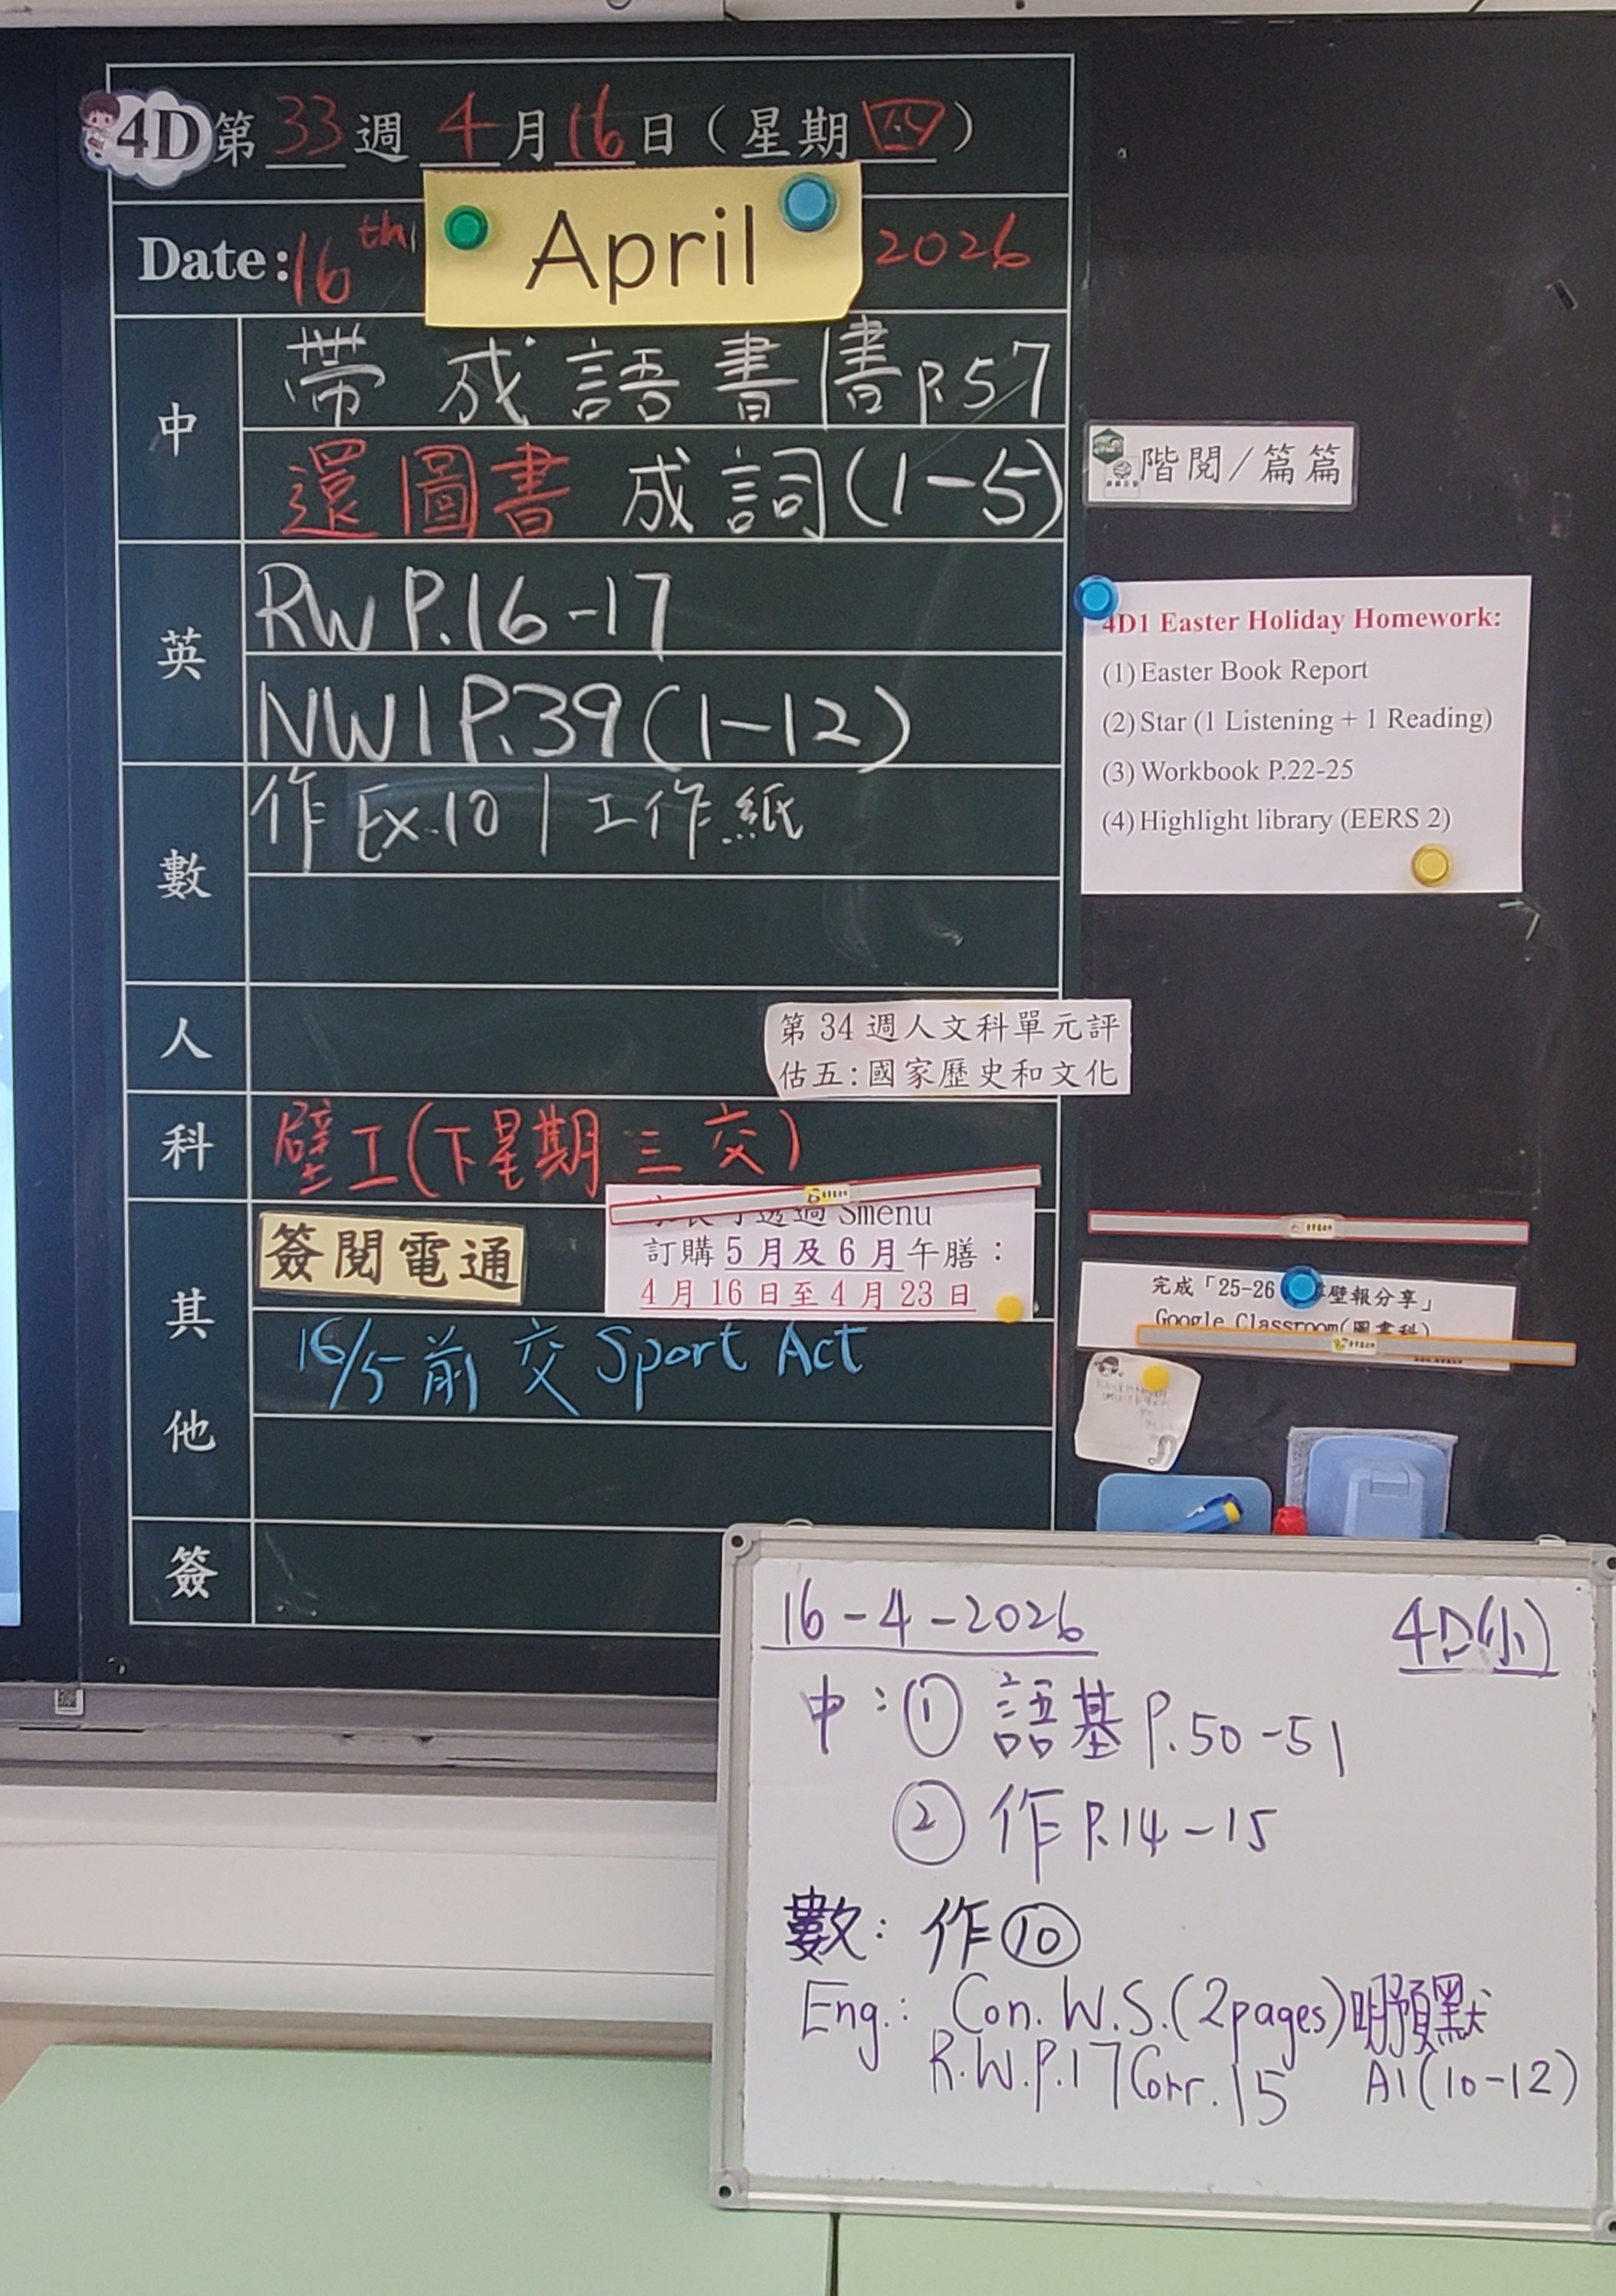 4D 第 33 週 4 月 16 日 (星期 四)
Date: 16th April 2026
中
帶 成語書 | 書 P.57
還圖書 成詞 (1-5)
英
RW P.16-17
NW1 P.39 (1-12)
數
作 Ex.10 | 工作紙
人
第 34 週人文科單元評
估五:國家歷史和文化
科
壁工(下星期三交)
其他
簽閱電通
透過 Smenu
訂購 5 月及 6 月午膳:
4 月 16 日至 4 月 23 日
16/5 前 交 Sport Act
簽
階閱/篇篇
4D1 Easter Holiday Homework:
(1) Easter Book Report
(2) Star (1 Listening + 1 Reading)
(3) Workbook P.22-25
(4) Highlight library (EERS 2)
完成「25-26 壁報分享」
Google Classroom(圖書科)
16-4-2026 4D(小)
中:① 語基 P.50-51
② 作 P.14-15
數: 作⑩
Eng.: Con. W.S.(2pages) 明預默
R.W.P.17 Corr. 15 A1(10-12)